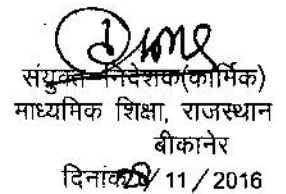 संयुक्त निदेशक(कार्मिक)
माध्यमिक शिक्षा, राजस्थान
बीकानेर
दिनांक / 11 / 2016